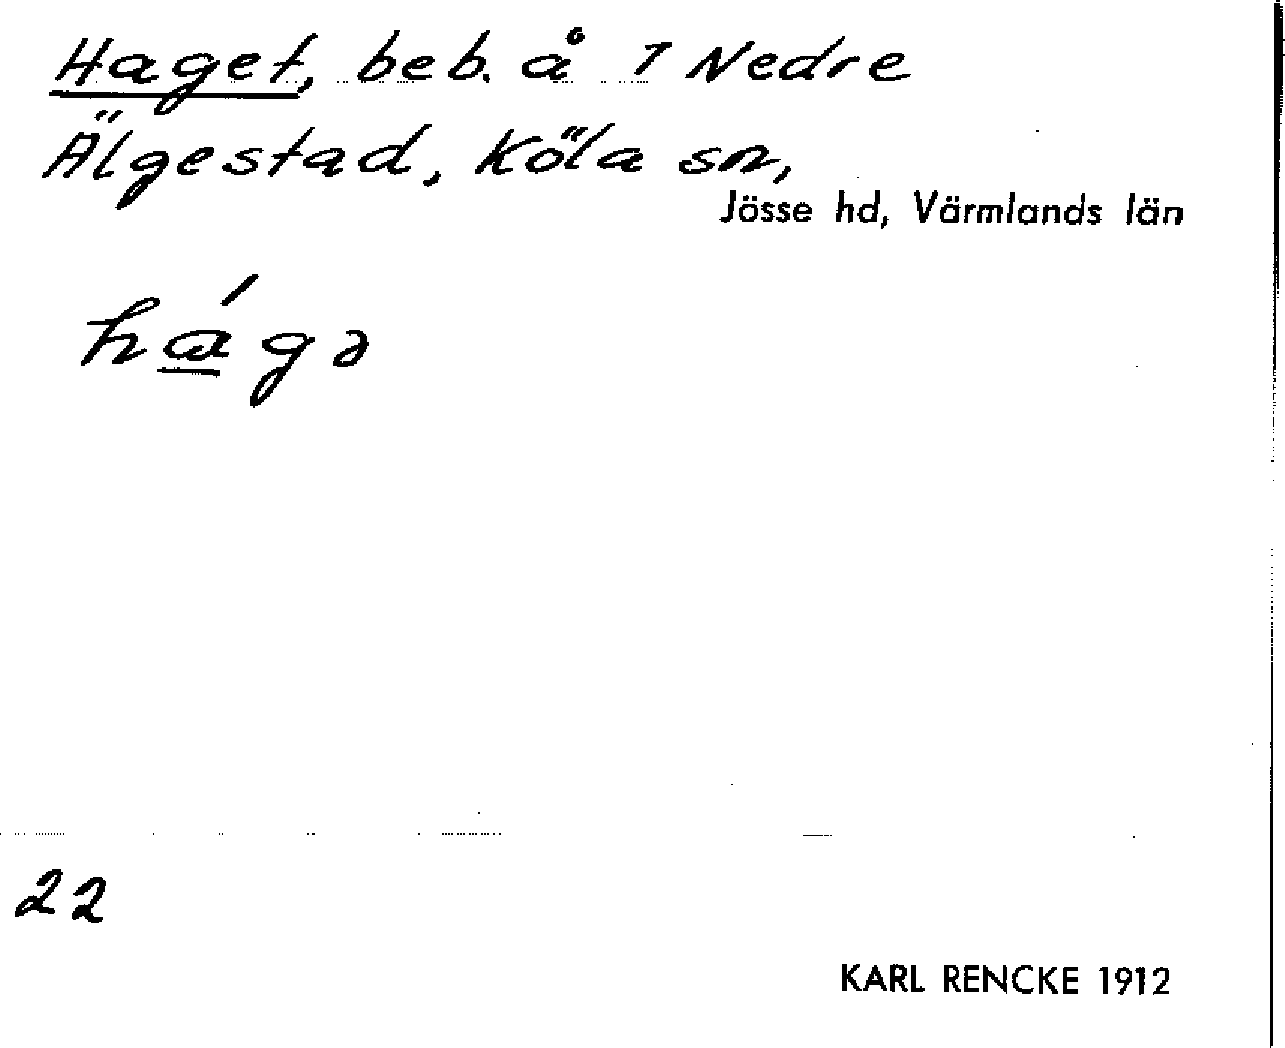 Haget, beb. å 1 Nedre
Älgestad, Köla sn,
Jösse hd, Värmlands län
há̲gə
22
KARL RENCKE 1912